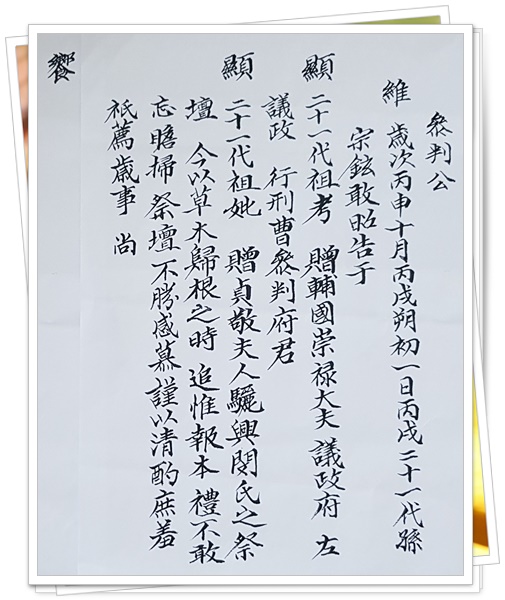 叅判公
維 歲次丙申十月丙戌朔初一日丙戌二十一代孫
宗鉉敢昭告于
顯 二十一代祖考 贈輔國崇禄大夫 議政府 左
議政 行刑曹叅判府君
顯 二十一代祖妣 贈貞敬夫人驪興閔氏之祭
壇 今以草木歸根之時 追惟報本 禮不敢
忘瞻掃 祭壇不勝感慕謹以清酌庶羞
祇薦歲事 尚
饗